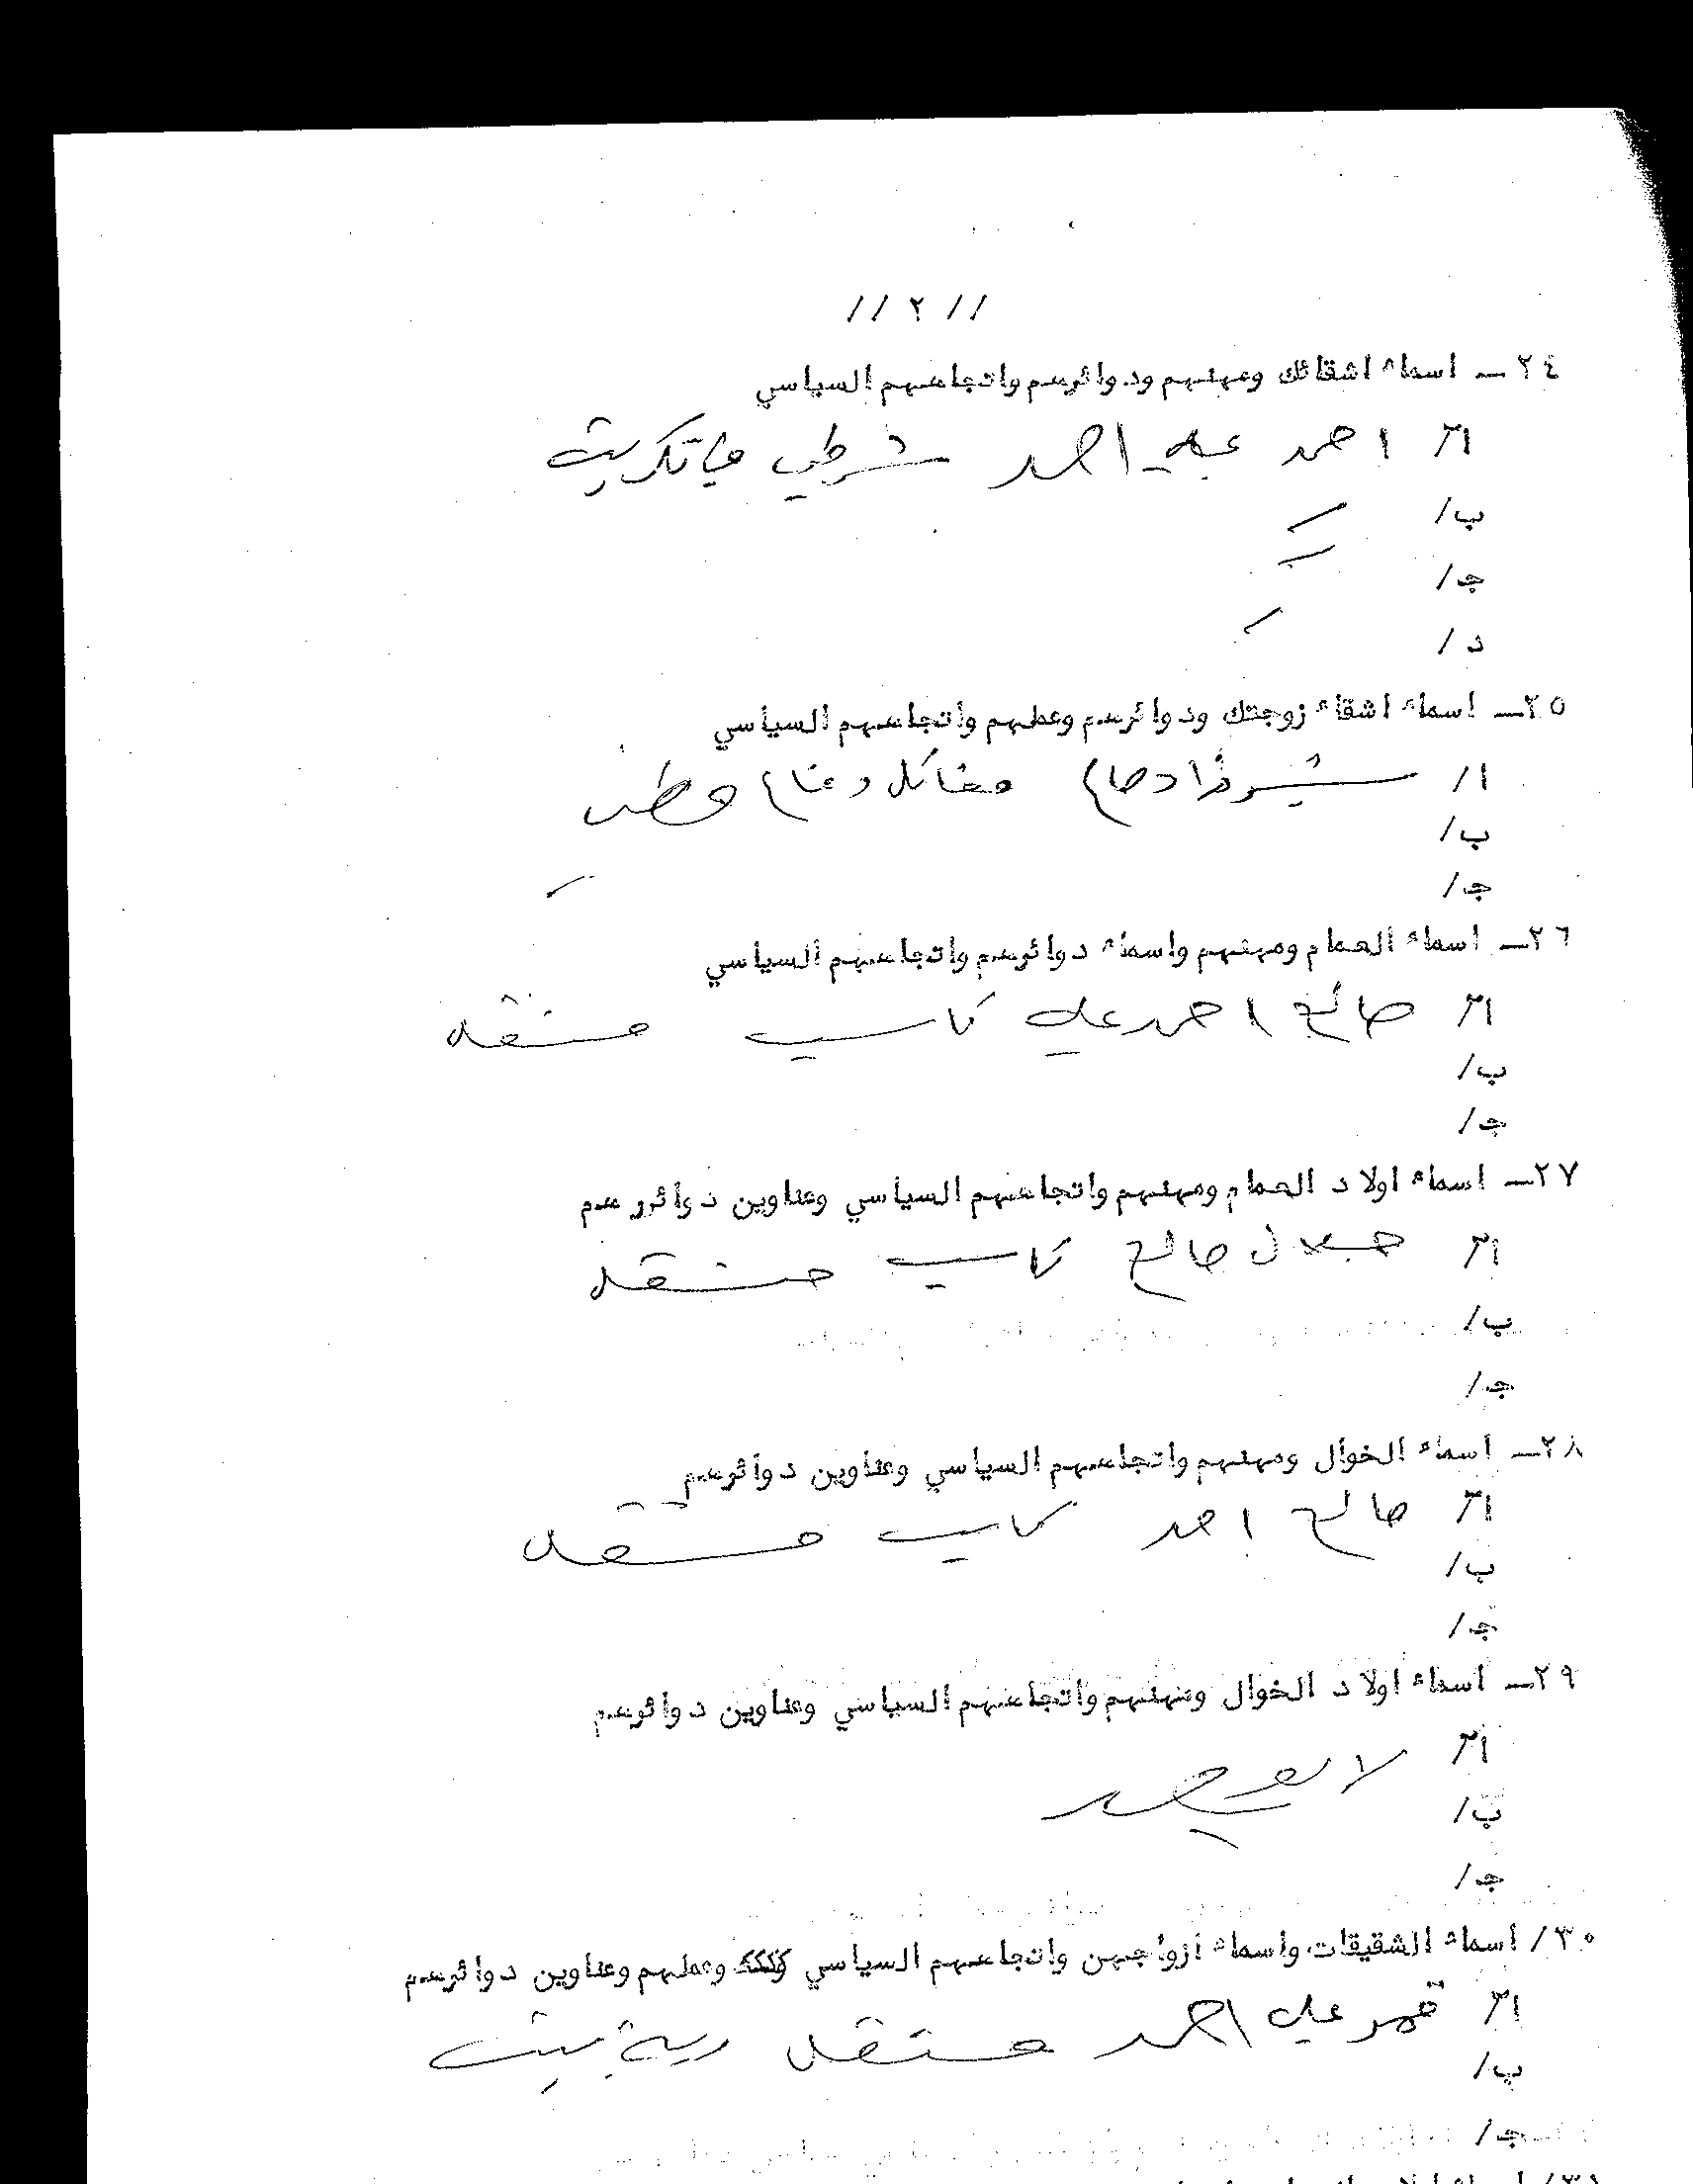 // ٢ //
٢٤ـ اسماء اشقائك ومهنهم ودوائرهم واتجاههم السياسي
أ/ احمد علي احمد شرطي في تكريت
ب/
ج/
د/
٢٥ـ اسماء اشقاء زوجتك ودوائرهم وعملهم واتجاههم السياسي
ا/ شيرزاد صالح مقاتل دفاع وطني
ب/
ج/
٢٦ـ اسماء العمام ومهنهم واسماء دوائرهم واتجاههم السياسي
أ/ صالح احمد علي كاسب مستقل
ب/
ج/
٢٧ـ اسماء اولاد العمام ومهنهم واتجاههم السياسي وعناوين دوائرهم
أ/ جلال صالح كاسب مستقل
ب/
ج/
٢٨ـ اسماء الخوال ومهنهم واتجاههم السياسي وعناوين دوائرهم
أ/ صالح احمد كاسب مستقل
ب/
ج/
٢٩ـ اسماء اولاد الخوال ومهنهم واتجاههم السياسي وعناوين دوائرهم
أ/ لا يوجد
ب/
ج/
٣٠/ اسماء الشقيقات واسماء ازواجهن واتجاههم السياسي وعملهم وعناوين دوائرهم
أ/ قمر علي احمد مستقل ربة بيت
ب/
ج/